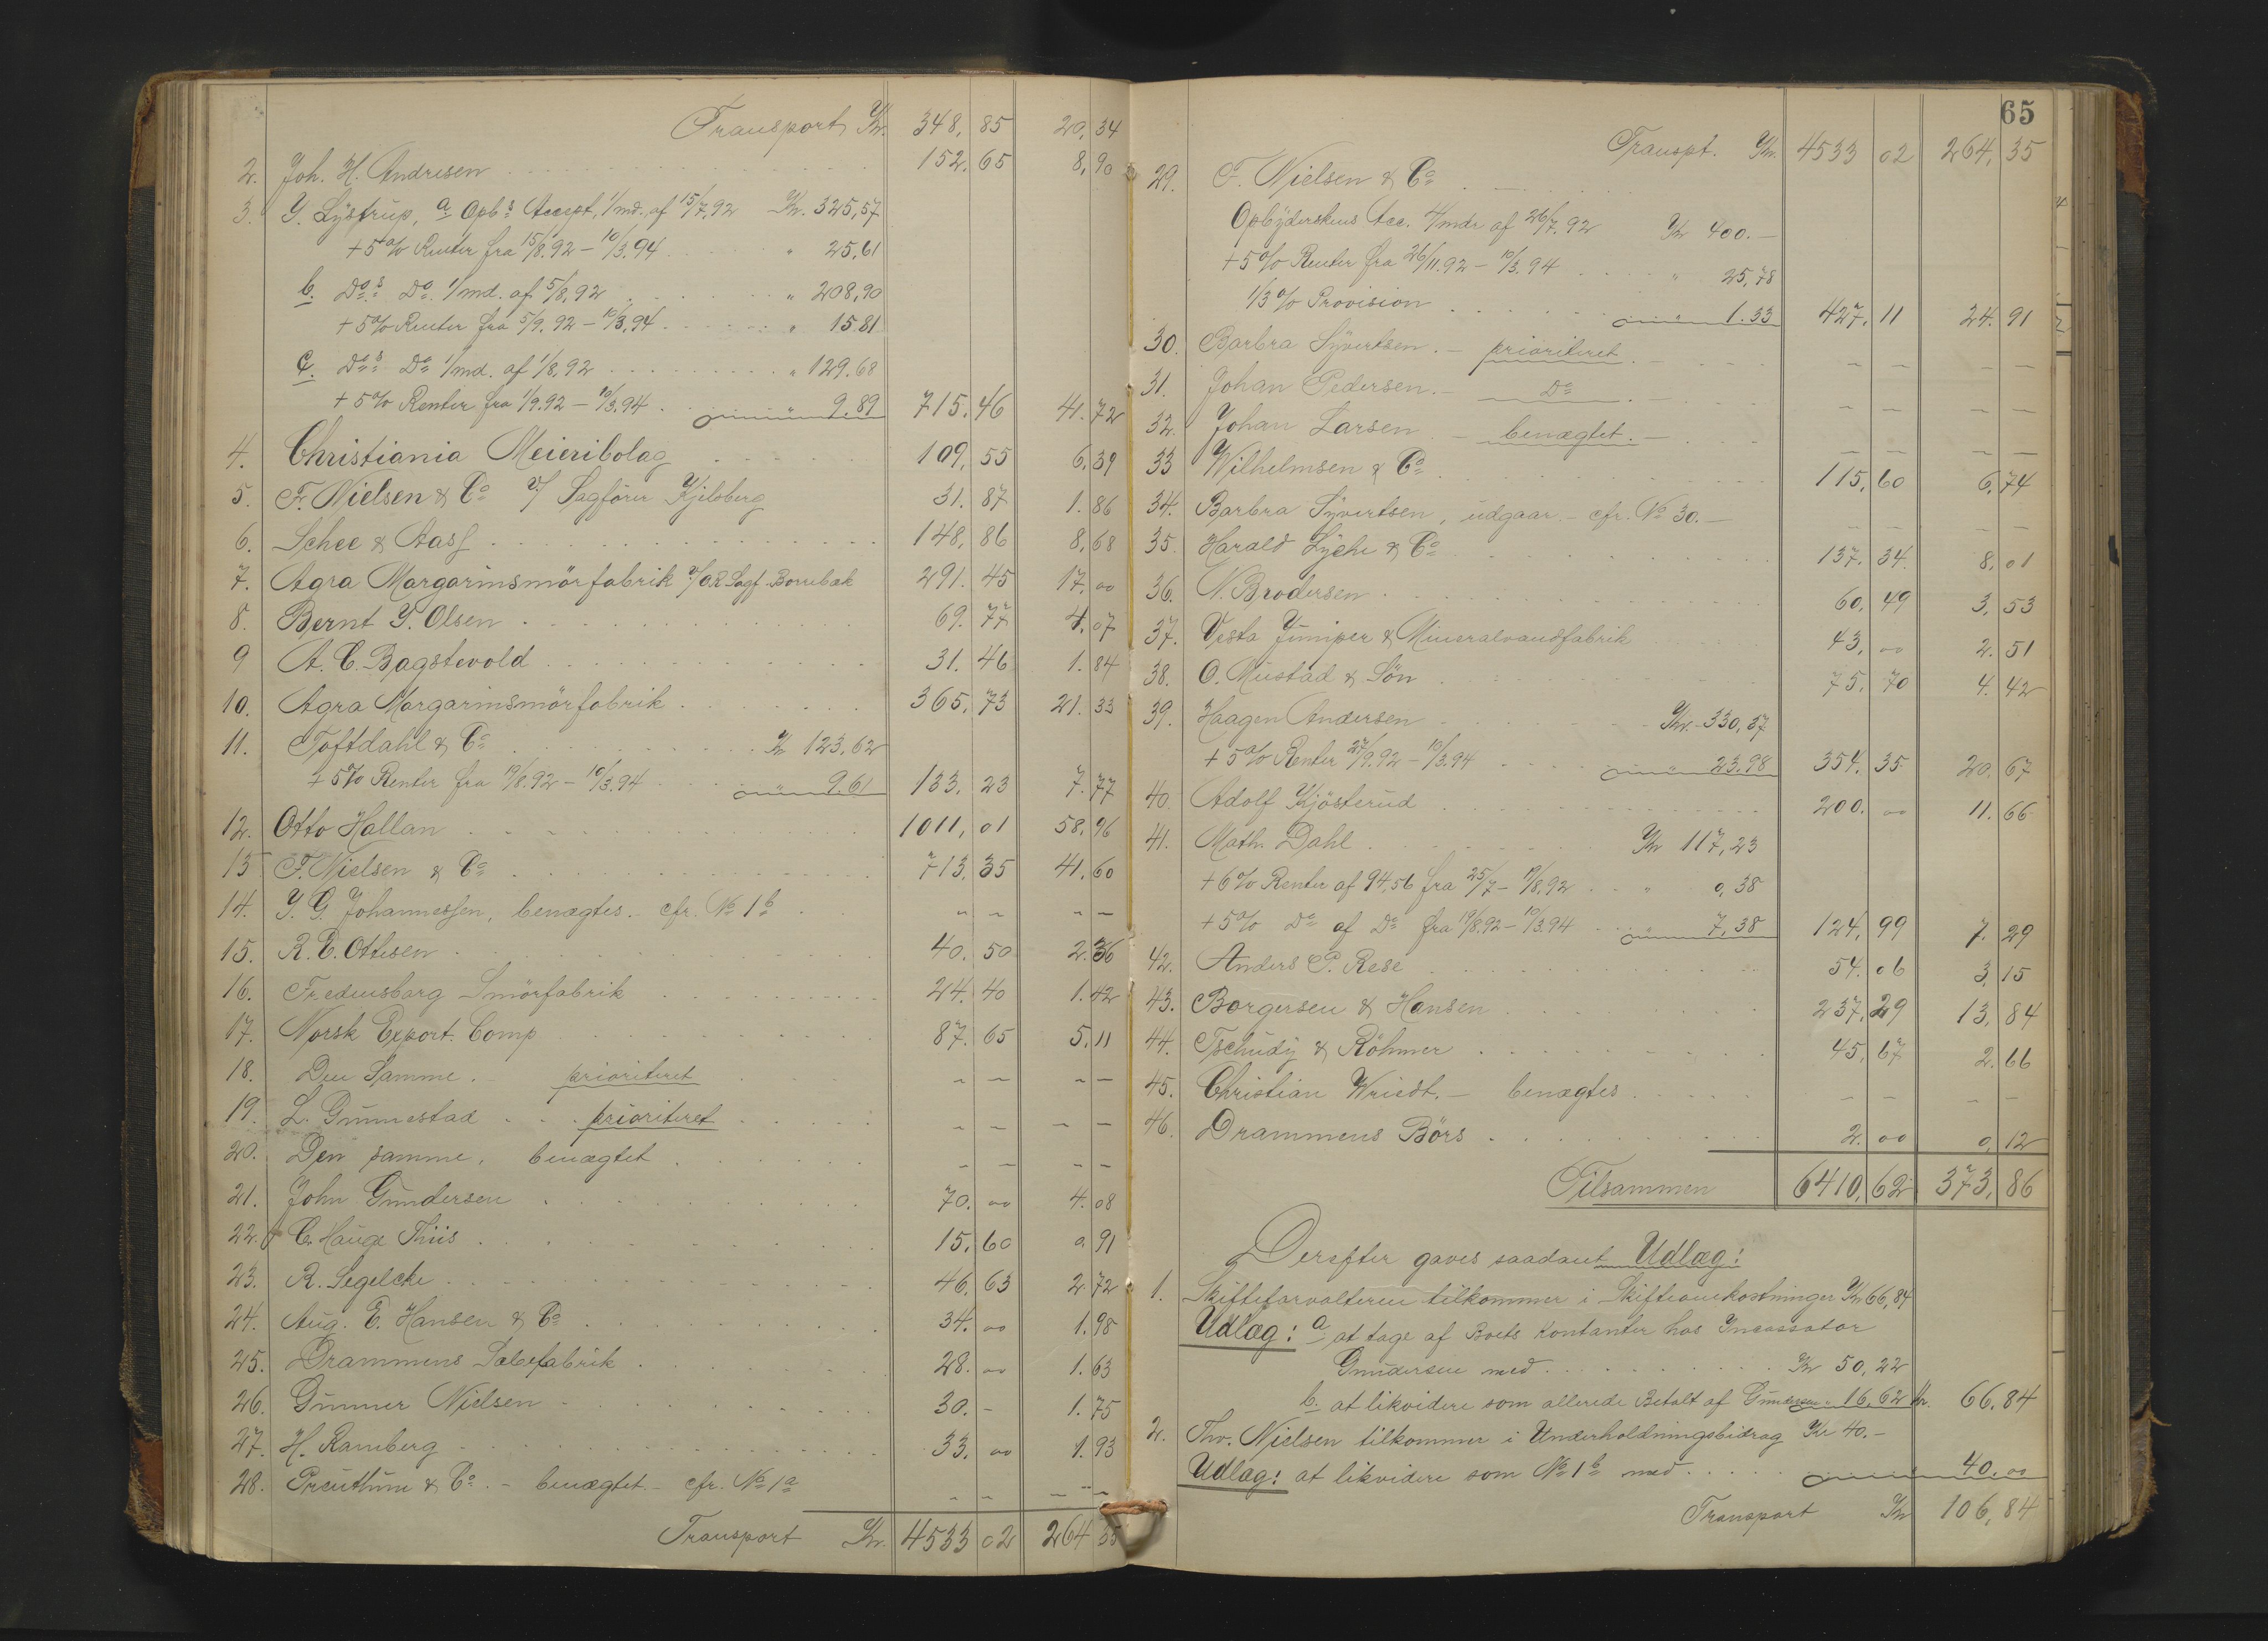 Transport Kr. 348,85 20,34
2. Joh. H. Andresen 152.65 8,90
3. Y. Lÿstrup, a Opbs Accept, 1/md. af 15/7.92 Kr. 325,57
+ 5% Renter fra 15/8.92 – 10/3.94 " 25,61
b. Dos Do. 1/md. af 5/8.92 " 208,90
+ 5% Renter fra 5/9.92 – 10/3.94 " 15.81
c. Dos Do 1/md. af 1/8.92 " 129.68
+ 5% Renter fra 1/9.92 – 10/3.94 " 9.89 715.46 41.72
4. Christiania Meieribolag 109,55 6,39
5. Fr. Nielsen & Co v/ Sagförer Kjilsberg 31.87 1.86
6. Schee & Aass 148,86 8,68
7. Agra Margarinsmörfabrik v/ O.R. Sagf. Borrebæk 291.45 17,00
8. Bernt Y. Olsen 69.77 4.07
9 A. C. Bagstevold 31.46 1.84
10. Agra Margarinsmörfabrik 365,73 21.33
11. Toftdahl & Co Kr 123.62
+ 5% Renter fra 19/8.92 – 10/3.94 " 9.61 133.23 7.77
12. Otto Hallan 1011,01 58,96
13 F. Nielsen & Co 713,35 41.60
14. Y. G. Johannessen, benægtes. cfr. No 1b – – – –
15. R. E. Ottesen 40.50 2.36
16. Fredensborg Smörfabrik 24.40 1.42
17. Norsk Export. Comp 87.65 5.11
18. Den Samme. – prioriteret – – – –
19. L. Gunnestad prioriteret – – – –
20. Den samme, benægtet – – – –
21. John Gundersen 70.00 4.08
22. C. Hauge Thiis 15.60 0.91
23. R. Segelcke 46.63 2.72
24. Aug. E. Hansen & Co 34.00 1.98
25. Drammens Sæbefabrik 28.00 1.63
26. Gunner Nielsen 30.– 1.75
27. H. Ramberg 33.00 1.93
28. Preuthun & Co. – benægtet – cfr. No 1a – – – –
Transport Kr. 4533 02 264 35
65
Transpt. Kr. 4533 02 264,35
29. F. Nielsen & Co
Opbÿderskens Acc. 4/mdr af 26/7.92 Kr 400.–
+ 5% Renter fra 26/11.92 – 10/3.94 " 25,78
1/3% Provision " 1.33 427.11 24.91
30. Barbra Sÿvertsen. – prioriteret – – – –
31. Johan Pedersen. – Do – – – –
32. Johan Larsen – benægtet. – – – – –
33 Wilhelmsen & Co 115.60 6,74
34. Barbra Sÿvertsen, udgaar. – cfr. No 30. – – – – –
35. Harald Lÿche & Co 137.34 8.01
36. N. Brodersen 60,49 3,53
37. Vesta Juniper & Mineralvandfabrik 43,00 2.51
38. O. Mustad & Sön 75.70 4.42
39. Haagen Andersen Kr. 330,37
+ 5% Renter 27/9.92 – 10/3.94 " 23.98 354.35 20.67
40. Adolf Kjösterud 200.00 11.66
41. Math. Dahl Kr 117,23
+ 6% Renter af 94,56 fra 25/7 – 19/8.92 " 0,38
+ 5% Do af Do fra 19/8.92 – 10/3.94 " 7,38 124,99 7.29
42. Anders P. Rese 54.06 3,15
43. Borgersen & Hansen 237,29 13,84
44. Tschudÿ & Röhmer 45,67 2.66
45. Christian Wriedt. – benægtes – – – –
46. Drammens Börs 2.00 0,12
Tilsammen 6410,62 373,86
Derefter gaves saadant Udlæg:
1. Skifteforvalteren tilkommer i Skifteomkostninger Kr 66,84
Udlæg: a at tage af Boets Kontanter hos Incassator
Gundersen med Kr 50,22
b. at likvidere som allerede Betalt af Gundersen " 16,62 Kr. 66,84
2. Thv. Nielsen tilkommer i Underholdningsbidrag Kr 40.–
Udlæg: at likvidere som No 1b med 40.00
Transport Kr 106,84